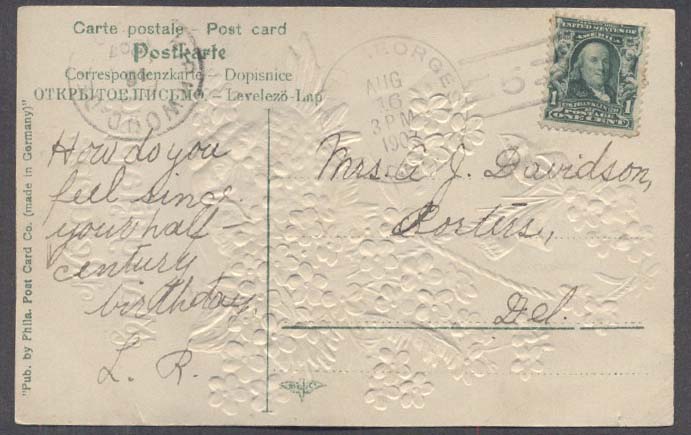 Carte postale - Post card
Postkarte
Correspondenzkarte - Dopisnice
ОТКРЫТОЕ ПИСЬМО - Levelező-Lap
"Pub. by Phila. Post Card Co. (made in Germany)"
GEORGES
AUG
16
3 PM
UNITED STATES OF
AMERICA
1 FRANKLIN 1
POSTAGE
ONE CENT
How do you
feel since
your half-
century
birthday.
L. R.
Mrs. J. Davidson,
Porters,
Del.